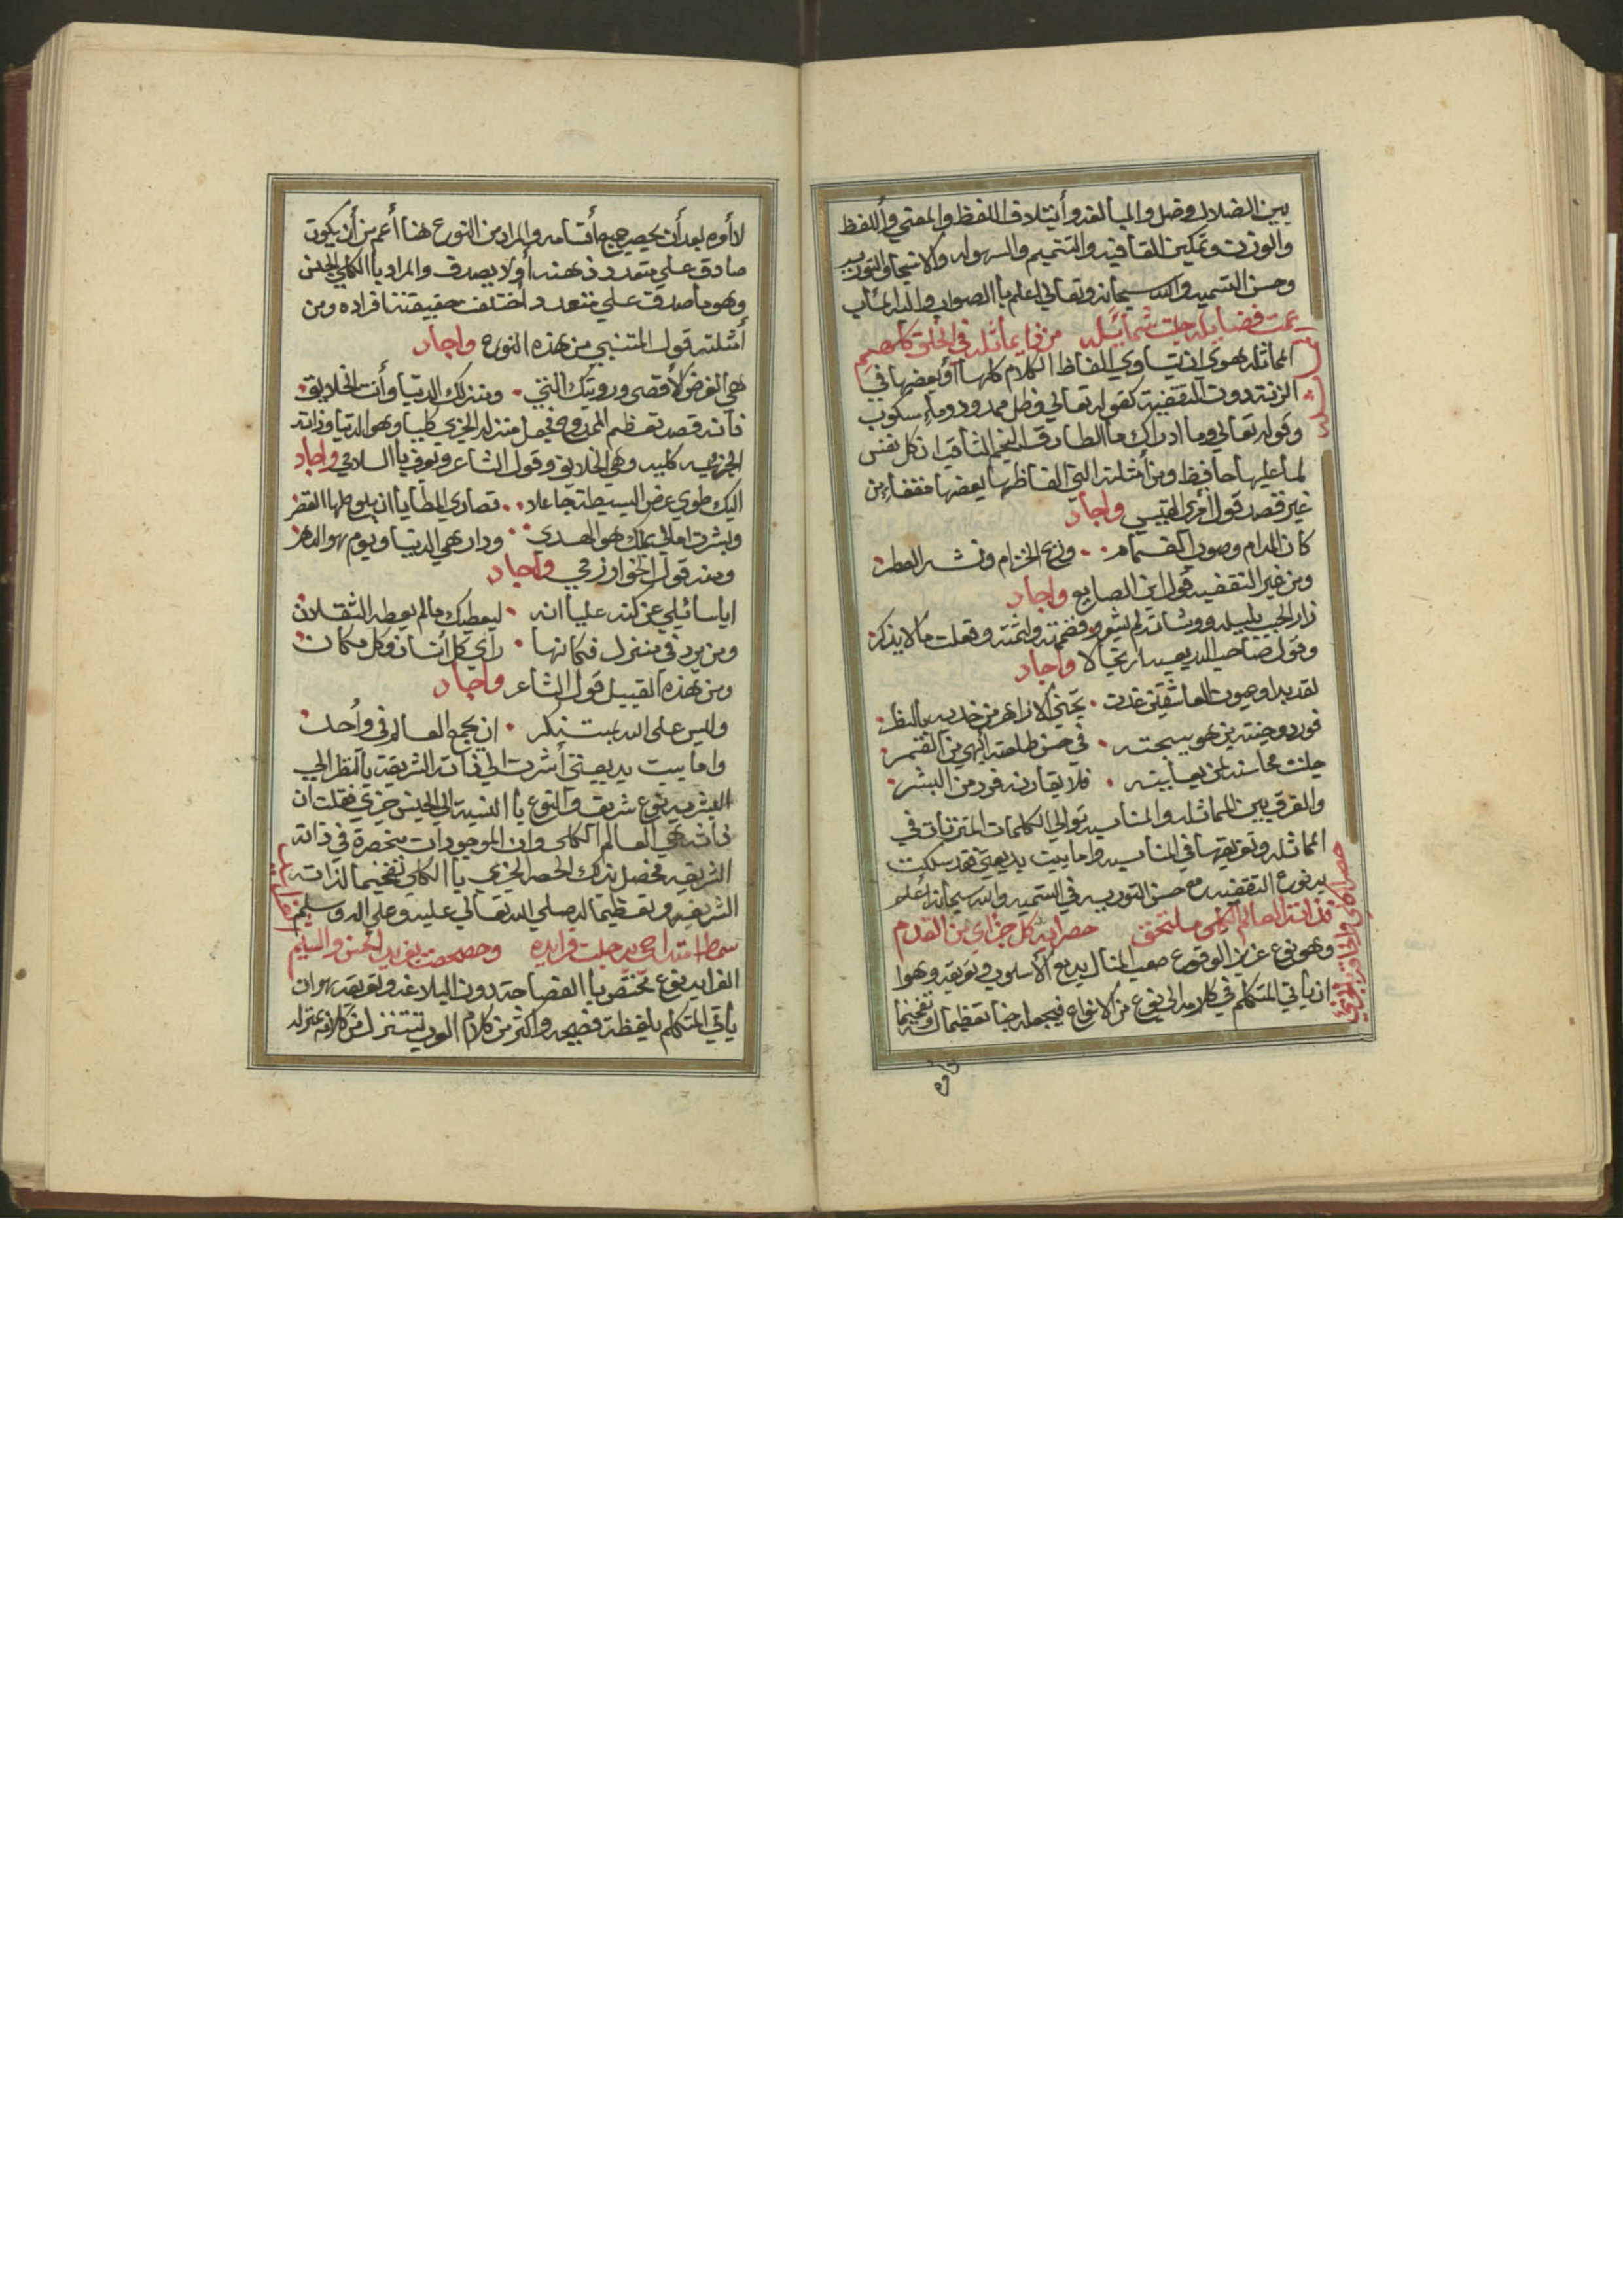 بين الضلال وضل والمبالغه وأيتلاف اللفظ والمعني وأللفظ
والوزن وتمكين القافيه والتتميم والسهوله والانسجام والتوريه
وحسن التسميه والله سبحانه وتعالي اعلم باالصواب واليه المئاب
عمت فضايله جلت شمايله من ذا يماثله في الخلق كلهم
المماثله هوي ان يتساوي الفاظ الكلام كلها أو بعضها في
الزنة دون التقفية كقوله تعالي وظل ممدود وماء سكوب
وقوله تعالي وما ادراك ماالطارق النجم الثاقب ان كل نفس
لما عليها حافظ ومن أمثلته التي الفاظها بعضها مقفاء من
غير قصد قول أمرئ القيس واجاد
كان المدام وصوب الغمام وريح الخزام ونشر العطر
ومن غير التقفيه قول ابن الصايع واجاد
زار الحبيب بليله ووشاته لم يشعرو فضممته ولثمته وفعلت ما لا يذكر
وقول صاحب البديعيه ارتجالا واجاد
لقد بدا وعيون العاشقين غدت تجني الازاهر من خديه بالنظر
فورد وجنته يزهو ببهجته في حسن طلعته أبهي من القمر
جلت محاسنه لمن يعاينه فلا يقارنه فرد من البشر
والفرق بين المماثله والمناسبه توالي الكلمات المتزنات في
المماثله وتفريقها في المناسبه واما بيت بديعيتي فقد سلكت
به نوع التقفيه مع حسن التوريه في التسميه والله سبحانه أعلم
فذاته العالم الكلي ملتحق حصرا به كل جزاي من القدم
وهو نوع عزيز الوقوع صعب المنال بديع الاسلوب وتعريفه وهوا
ان يأتي المتكلم في كلامه الي نوع من الانواع فيجعله جنسا تعظيما له وتفخيما
لاأوه
لاأوه بعد أن يحصر جميع أقسامه والمراد من النوع هنا أعم من أن يكون
صادق علي متعدد ذهنه أو لا يصدق والمراد باالكلي الجنس
وهو ما صدق علي متعدد أختلفت حقيقتنا فراده ومن
أمثلته قول المتنبي من هذه النوع واجاد
هي الغرض الأقصي ورويتك المني ومنزلك الدنيا وأنت الخلايق
فأنه قصد تعظيم الممدوح فجعل منزله الجزي كليا وهو الدنيا وذاته
الجزييه كليه وهي الخلايق وقول الشاعر ويعرف باالسلامي واجاد
اليك طوي عرض البسيطة جاعلا قصاري المطايا ان يلوح لها القصر
وبشرت امالي بملك هو الهدي ودار هي الدنيا ويوم هو الدهر
ومنه قول الخوارزمي واجاد
اياسائيلي عن كنه علياانه ليعطيك مالم يعطه الثقلان
ومن يره في منزل فكانها رأي كل أنسان وكل مكان
ومن هذه القبيل قول الشاعر واجاد
وليس علي الله بمستنكر ان يجمع العالم في واحد
واما بيت بديعيتي أشرت الي ذاته الشريفة باالنظر الي
البشريه نوع شريف والنوع باالنسبة الي الجنس جزي فقلت ان
ذاته هي العالم الكلي وان الموجودات منحصرة في ذاته
الشريفه فحصل بذلك الحصر الجزي باالكلي تفخيما لذاته
الشريفه وتعظيما له صلي الله تعالي عليه وعلي اله وسلم
سمط امتداحيه جلت فرايده وحصحصت بفريد الحسن والشيم
الفرايد نوع مختص باالفصاحة دون البلاغه وتعريفه هو ان
يأتي المتكلم بلفظة فصيحه واكثر من كلام العرب تتنزل من كلامه بمنزله